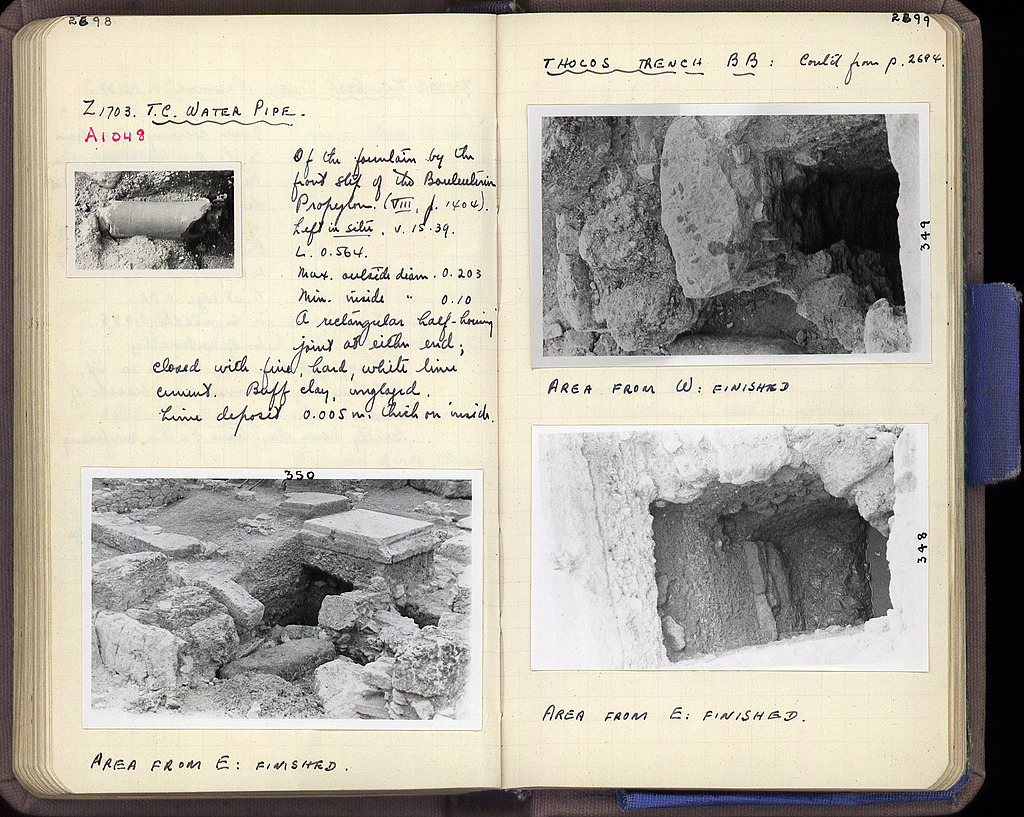 2698
Z1703. T.C. WATER PIPE.
A1048
Of the fountain by the
front step of the Bouleuterion
Propylon. (VIII, p. 1404).
Left in situ. v. 15. 39.
L. 0.564.
Max. outside diam. 0.203
Min. inside " 0.10
A rectangular half-housing
joint at either end;
closed with fine, hard, white lime
cement. Buff clay, unglazed.
Lime deposit 0.005 m. thick on inside.
350
AREA FROM E: FINISHED.
2699
THOLOS TRENCH BB: Cont'd from p. 2694.
349
AREA FROM W: FINISHED
348
AREA FROM E: FINISHED.